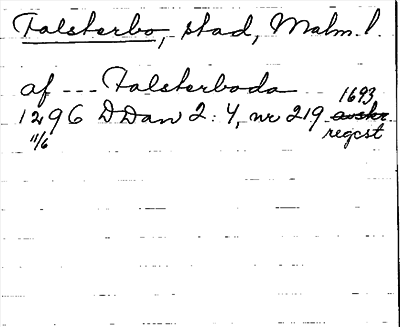 Falsterbo, stad, Malm. l.
af --- Falsterboda
1296 DDan 2:4, nr 219 1693 avskr
11/6 regest